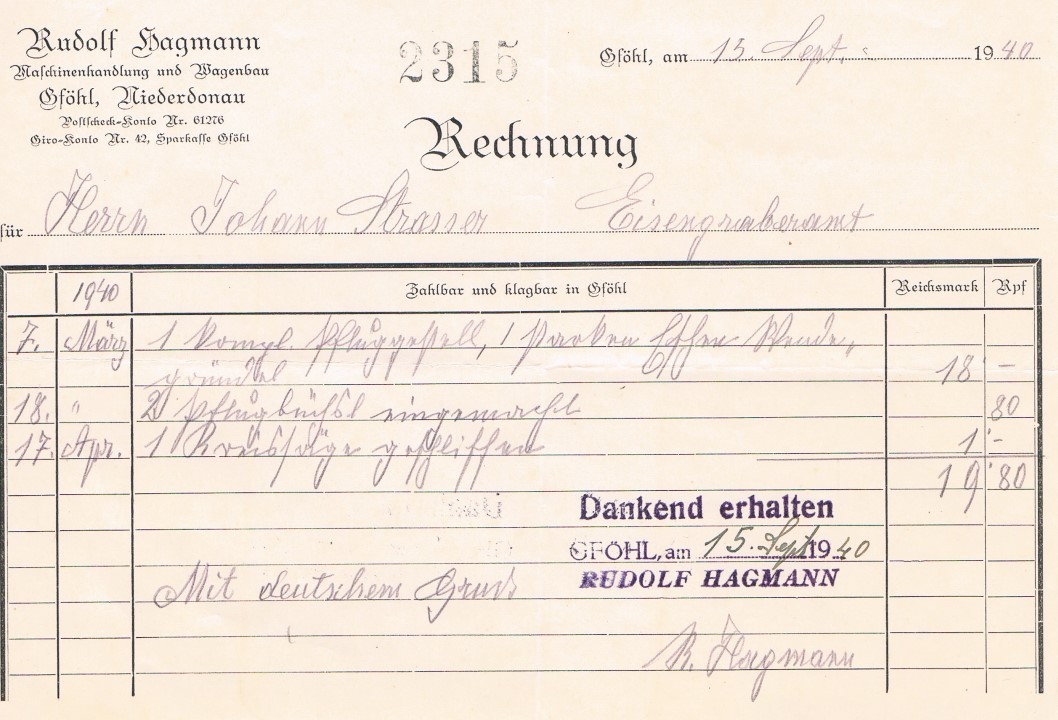 Rudolf Hagmann
Maschinenhandlung und Wagenbau
Gföhl, Niederdonau
Postscheck-Konto Nr. 61276
Giro-Konto Nr. 42, Sparkasse Gföhl
2315
Gföhl, am 15. Sept. 1940
Rechnung
für Herrn Johann Strasser Eisengraberamt
1940 Zahlbar und klagbar in Gföhl Reichsmark Rpf
7. März 1 kompl. Pfluggestell, 1 starken Wende-
gründel 18 –
18. " 2 Pflugbüchsl eingemacht 80
17. Apr. 1 Kreissäge geschliffen 1 –
19 80
Dankend erhalten
GFÖHL, am 15. Sept. 1940
RUDOLF HAGMANN
Mit deutschem Gruss
R. Hagmann